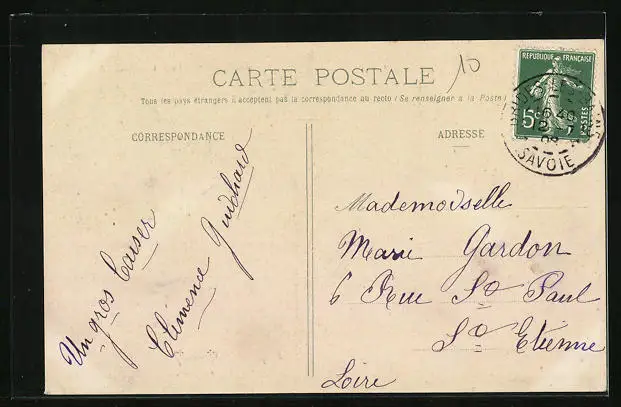 CARTE POSTALE
10
Tous les pays étrangers n'acceptent pas la correspondance au recto (Se renseigner à la Poste)
CORRESPONDANCE
ADRESSE
REPUBLIQUE FRANÇAISE
5c
POSTES
SAVOIE
Un gros baiser
Clémence Guichard
Mademoiselle
Marie Gardon
6 Rue St Paul
St Etienne
Loire